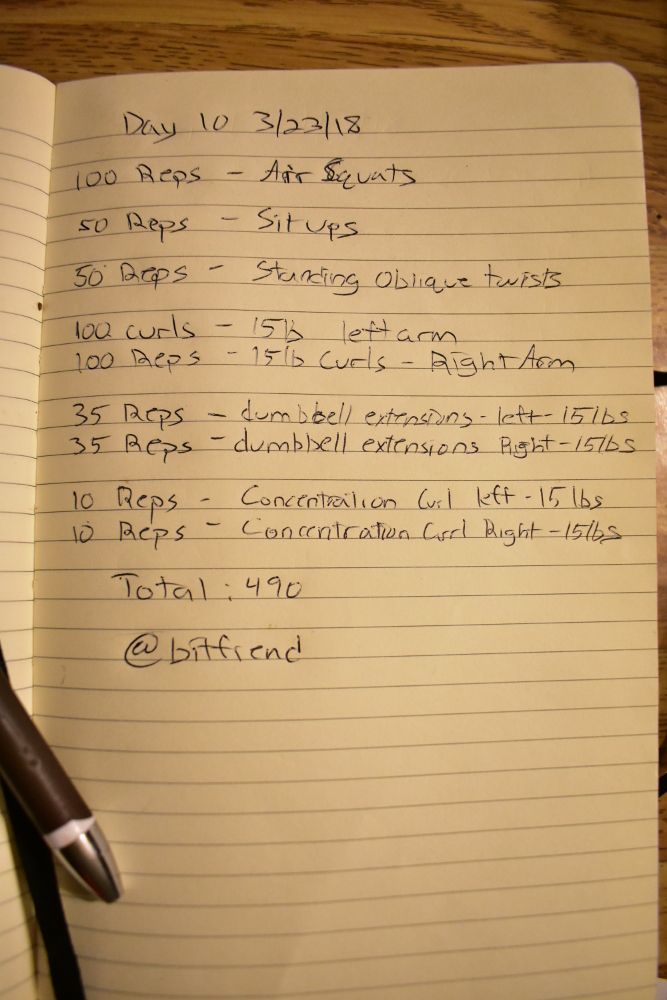 Day 10 3/23/18
100 Reps - Air Squats
50 Reps - Sit ups
50 Reps - Standing Oblique twists
100 curls - 15lb left arm
100 Reps - 15lb Curls - Right Arm
35 Reps - dumbbell extensions - left - 15lbs
35 Reps - dumbbell extensions Right - 15lbs
10 Reps - Concentration Curl left - 15lbs
10 Reps - Concentration Curl Right - 15lbs
Total: 490
@bitfiend